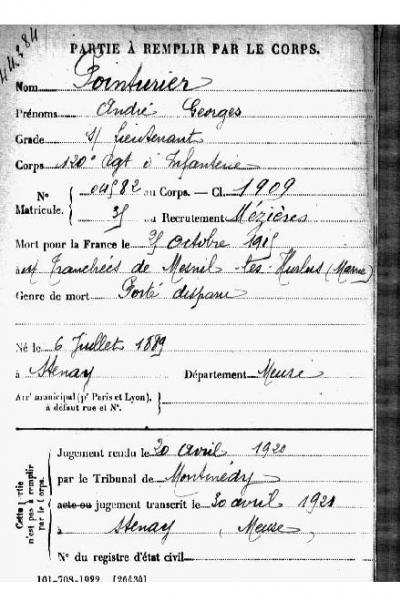 44384
PARTIE À REMPLIR PAR LE CORPS.
Nom Pointurier
Prénoms André Georges
Grade S/ Lieutenant
Corps 120e Rgt d'Infanterie
N° Matricule. { au Corps. — Cl. 1909
au Recrutement Mézières
Mort pour la France le octobre 191
à Tranchées de Mesnil-les-Hurlus (Marne)
Genre de mort Porté disparu
Né le 6 Juillet 1889
à Stenay Département Meuse
Arrt municipal (pr Paris et Lyon), à défaut rue et N°. {
Cette partie n'est pas à remplir par le Corps.
Jugement rendu le 20 avril 1920
par le Tribunal de Montmédy
acte ou jugement transcrit le 30 avril 1920
à Stenay (Meuse)
N° du registre d'état civil
101-708-1922. [26434]